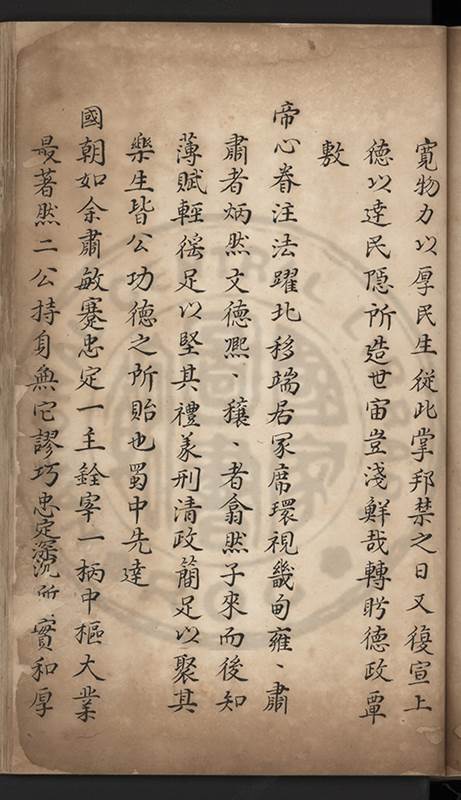 寬物力以厚民生從此掌邦禁之日又復宣上
德以達民隱所造世宙豈淺鮮哉轉盻德政覃
敷
帝心眷注法躍北移端居冢席環視畿甸雍、肅
肅者炳然文德凞、穰、者翕然子來而後知
薄賦輕徭足以堅其禮義刑清政簡足以聚其
樂生皆公功德之所貽也蜀中先達
國朝如余肅敏蹇忠定一主銓宰一柄中樞大業
最著然二公持身無它謬巧忠定深沉所實和厚